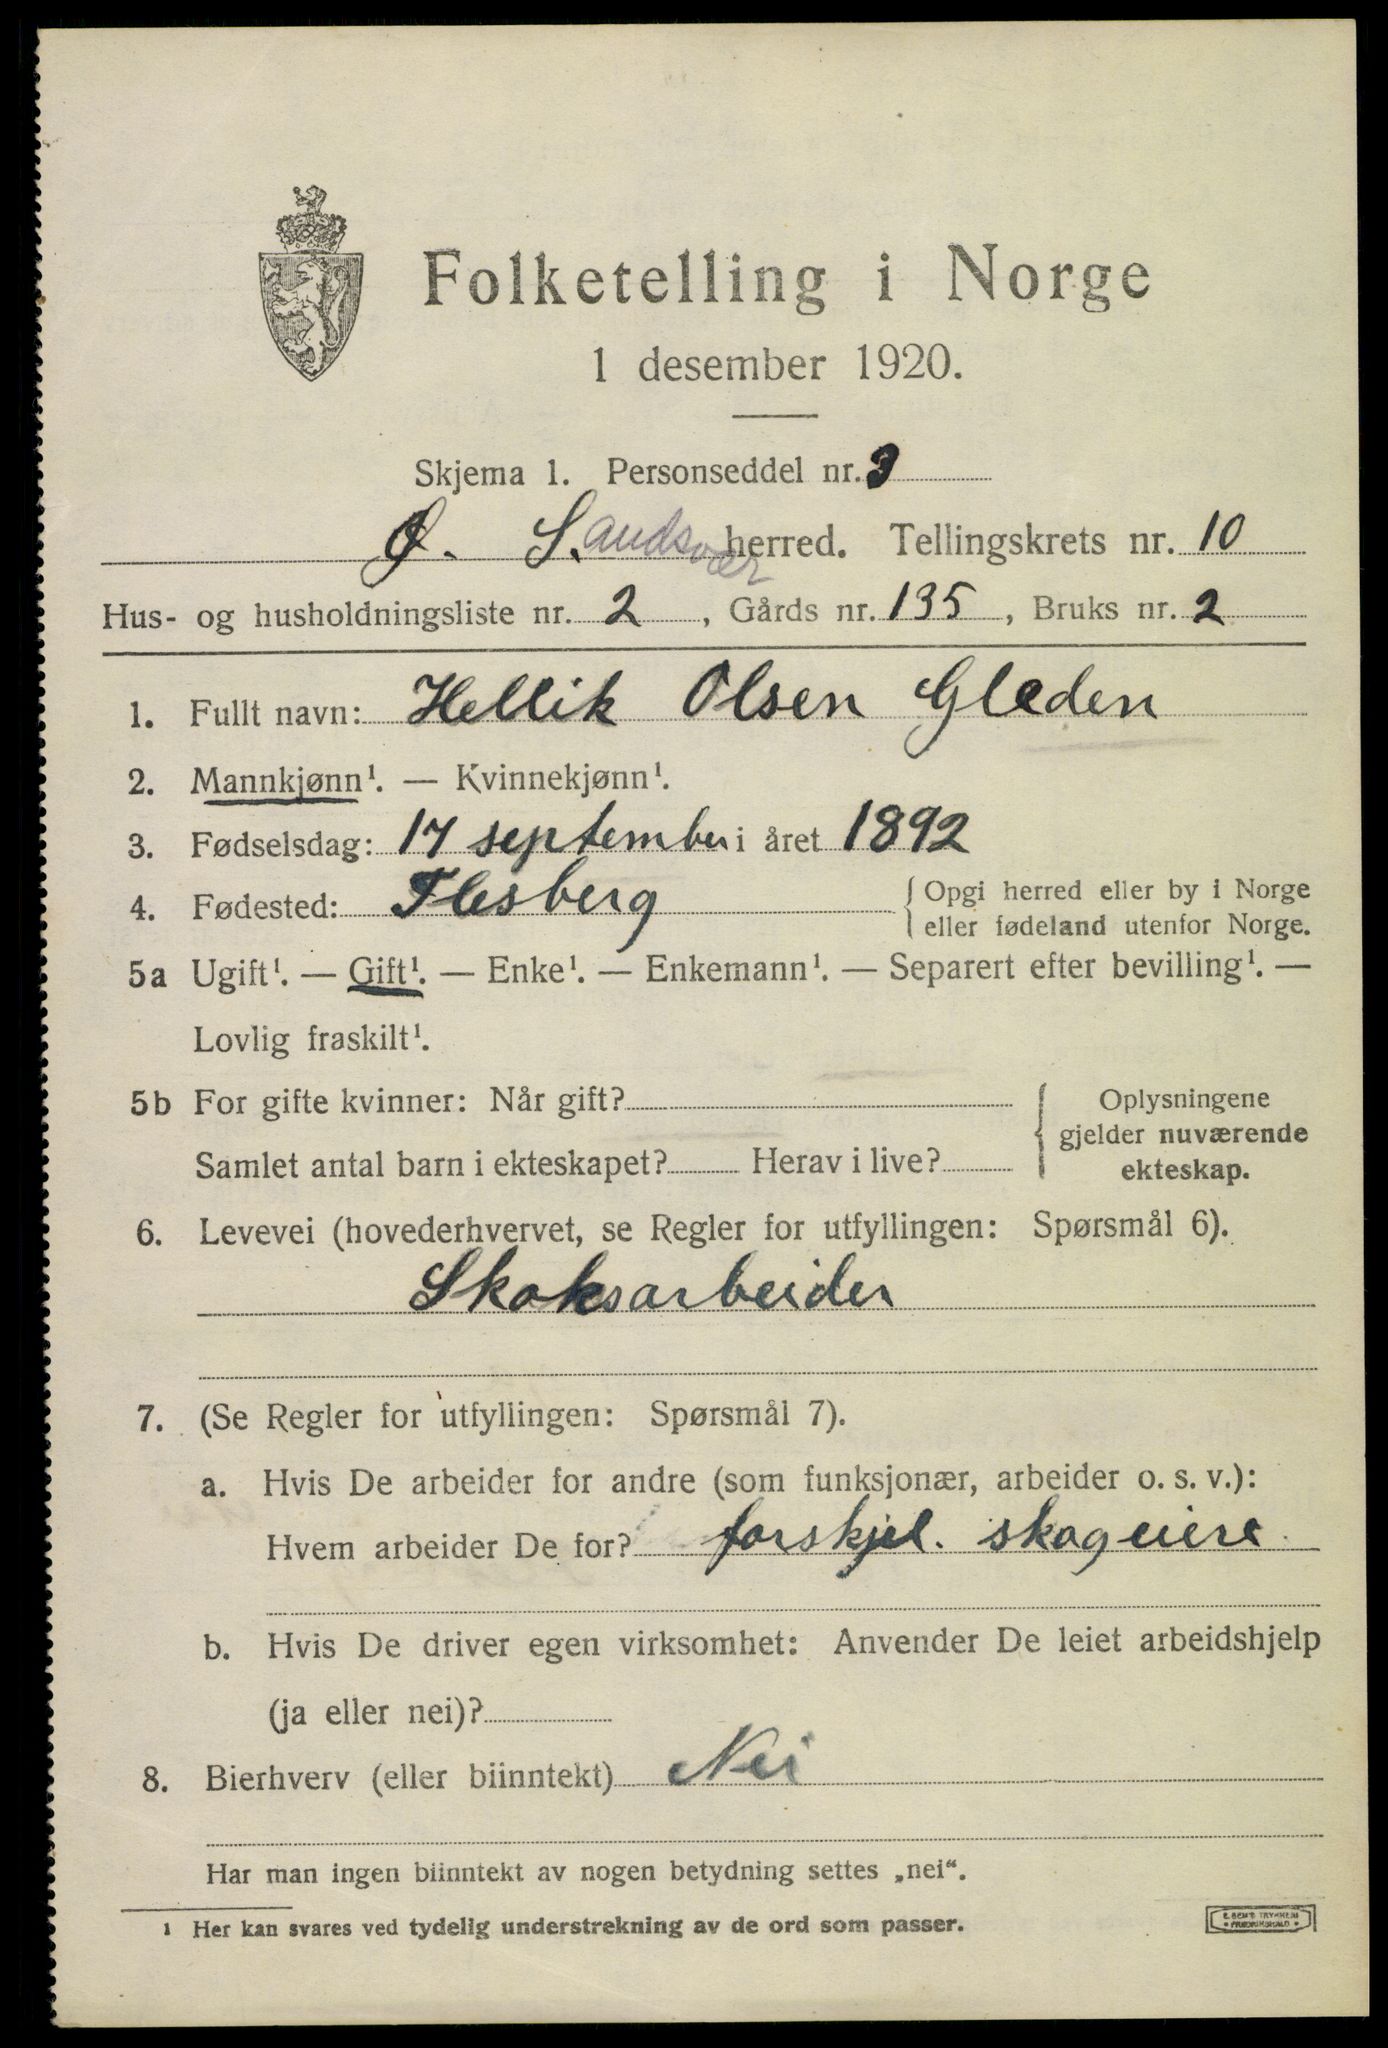 Folketelling i Norge
1 desember 1920.
Skjema 1. Personseddel nr. 3
Ø. Sandsvær herred. Tellingskrets nr. 10
Hus- og husholdningsliste nr. 2, Gårds nr. 135, Bruks nr. 2
1. Fullt navn: Hellik Olsen Gladen
2. Mannkjønn¹. — Kvinnekjønn¹.
3. Fødselsdag: 17 september i året 1892
4. Fødested: Flesberg { Opgi herred eller by i Norge
eller fødeland utenfor Norge.
5a Ugift¹. — Gift¹. — Enke¹. — Enkemann¹. — Separert efter bevilling¹. —
Lovlig fraskilt¹.
5b For gifte kvinner: Når gift? { Oplysningene
gjelder nuværende
Samlet antal barn i ekteskapet? Herav i live? ekteskap.
6. Levevei (hovederhvervet, se Regler for utfyllingen: Spørsmål 6).
Skoksarbeider
7. (Se Regler for utfyllingen: Spørsmål 7).
a. Hvis De arbeider for andre (som funksjonær, arbeider o. s. v.):
Hvem arbeider De for? forskjel. skogeiere
b. Hvis De driver egen virksomhet: Anvender De leiet arbeidshjelp
(ja eller nei)?
8. Bierhverv (eller biinntekt) Nei
Har man ingen biinntekt av nogen betydning settes „nei“.
¹ Her kan svares ved tydelig understrekning av de ord som passer.